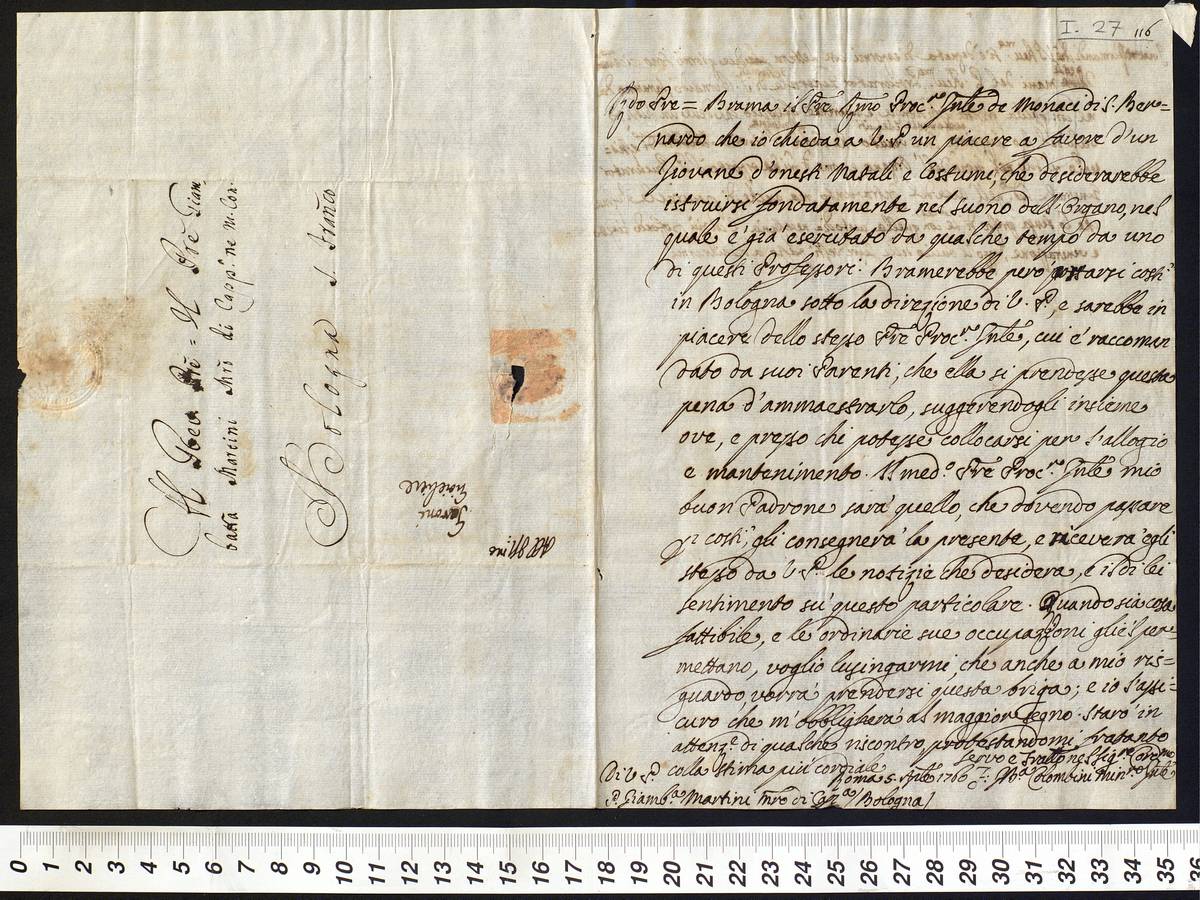 I. 27 116
Brama il Pre Proc.re Gnle de Monaci di S. Ber=
nardo che io chieda a V. P. un piacere a favore d'un
Giovane d'onesti Natali e Costumi, che desiderarebbe
istruirsi fondatamente nel suono dell'Organo, nel
quale è già esercitato da qualche tempo da uno
di questi Professori. Bramerebbe però portarsi costì
in Bologna sotto la direzione di V. P., e sarebbe in
piacere dello stesso Pre Proc.re Gnle, cui è raccoman
dato da suoi Parenti, che ella si prendesse questa
pena d'ammaestrarlo, suggerendogli insieme
ove, e presso chi potesse collocarsi per l'allogio
e mantenimento. Il med.o Pre Proc.re Gnle mio
buon Padrone sarà quello, che dovendo passare
p costì, gli consegnerà la presente, e riceverà egli
stesso da V. P. le notizie che desidera, e il di lei
sentimento su questo particolare. Quando sia cosa
fattibile, e le ordinarie sue occupazioni gliel per=
mettano, voglio lusingarmi, che anche a mio ris=
guardo vorrà prendersi questa briga; e io l'assi=
curo che m'obbligherà al maggior segno. Starò in
attenz.e di qualche riscontro, protestandomi fratanto
Di V. P. colla stima più cordiale
Roma 5. Aprile 1766
P. Giamb.a Martini Mro di Cap.a / Bologna /
Pre Giam
batta Martini Mro di Capp.a ne M. Con.
Bologna S. Franco